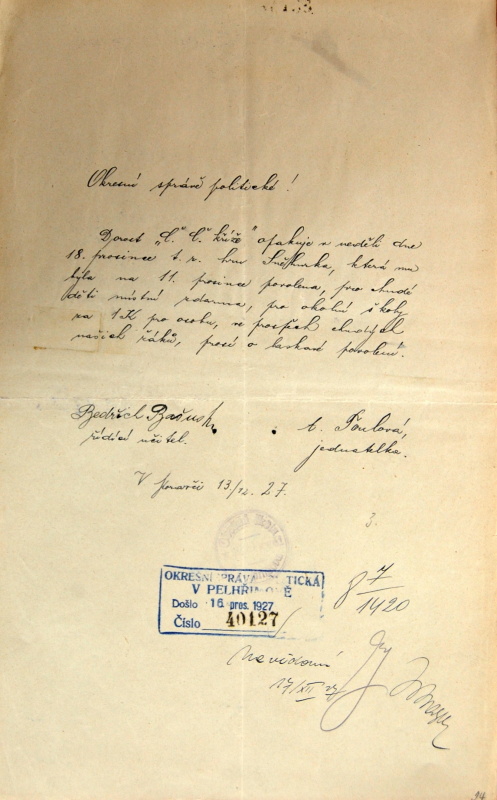 Okresní správě politické!
Dorost „Č. Č. kříže" opakuje v neděli dne
18. prosince t. r. hru Sněhurka, která mu
byla na 11. prosince povolena, pro chudé
děti místní zdarma, pro okolní školy
za 1 K po osobu, ve prospěch chudých
našich žáků, prosí o laskavé povolení.
Bedřich
řídící učitel.
jednatelka.
V 13/12. 27.
3.
OKRESNÍ SPRÁVA POLITICKÁ
V PELHŘIMOVĚ
Došlo 16. pros. 1927
Číslo 40127
8 7/1920
Na vědomí
17/XII 27
94